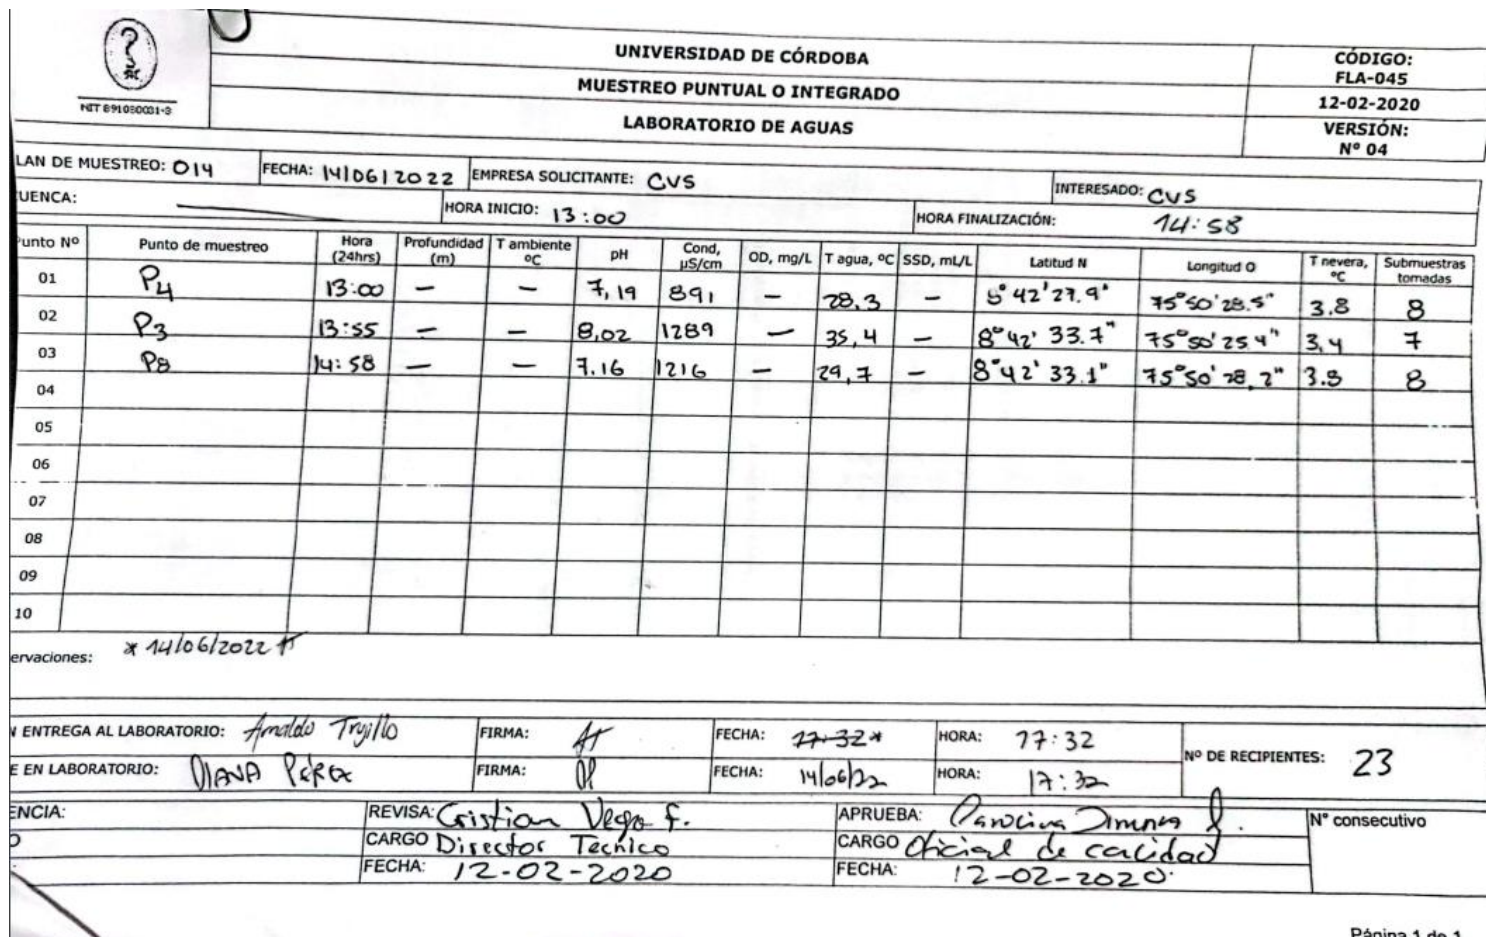 UNIVERSIDAD DE CÓRDOBA
MUESTREO PUNTUAL O INTEGRADO
LABORATORIO DE AGUAS
CÓDIGO:
FLA-045
12-02-2020
VERSIÓN:
Nº 04
NIT 891080031-3
LAN DE MUESTREO: 014 FECHA: 14/06/2022 EMPRESA SOLICITANTE: CVS INTERESADO: CVS
UENCA: HORA INICIO: 13:00 HORA FINALIZACIÓN: 14:58
Punto Nº Punto de muestreo Hora (24hrs) Profundidad (m) T ambiente ºC pH Cond, µS/cm OD, mg/L T agua, ºC SSD, mL/L Latitud N Longitud O T nevera, ºC Submuestras tomadas
01 P4 13:00 — — 7,19 891 — 28,3 — 8°42'27.9" 75°50'28.5" 3.8 8
02 P3 13:55 — — 8,02 1289 — 35,4 — 8°42' 33.7" 75°50'25.4" 3,4 7
03 P8 14:58 — — 7.16 1216 — 29,7 — 8°42' 33.1" 75°50'28,2" 3.8 8
04
05
06
07
08
09
10
ervaciones: * 14/06/2022
N ENTREGA AL LABORATORIO: Arnaldo Trujillo FIRMA: FECHA: 17:32* HORA: 17:32 Nº DE RECIPIENTES: 23
E EN LABORATORIO: DIANA PéREZ FIRMA: FECHA: 14/06/22 HORA: 17:32
ENCIA: REVISA: Cristian Vega F. APRUEBA: Carolina Nº consecutivo
O CARGO Director Tecnico CARGO Oficial de calidad
FECHA: 12-02-2020 FECHA: 12-02-2020
Página 1 de 1